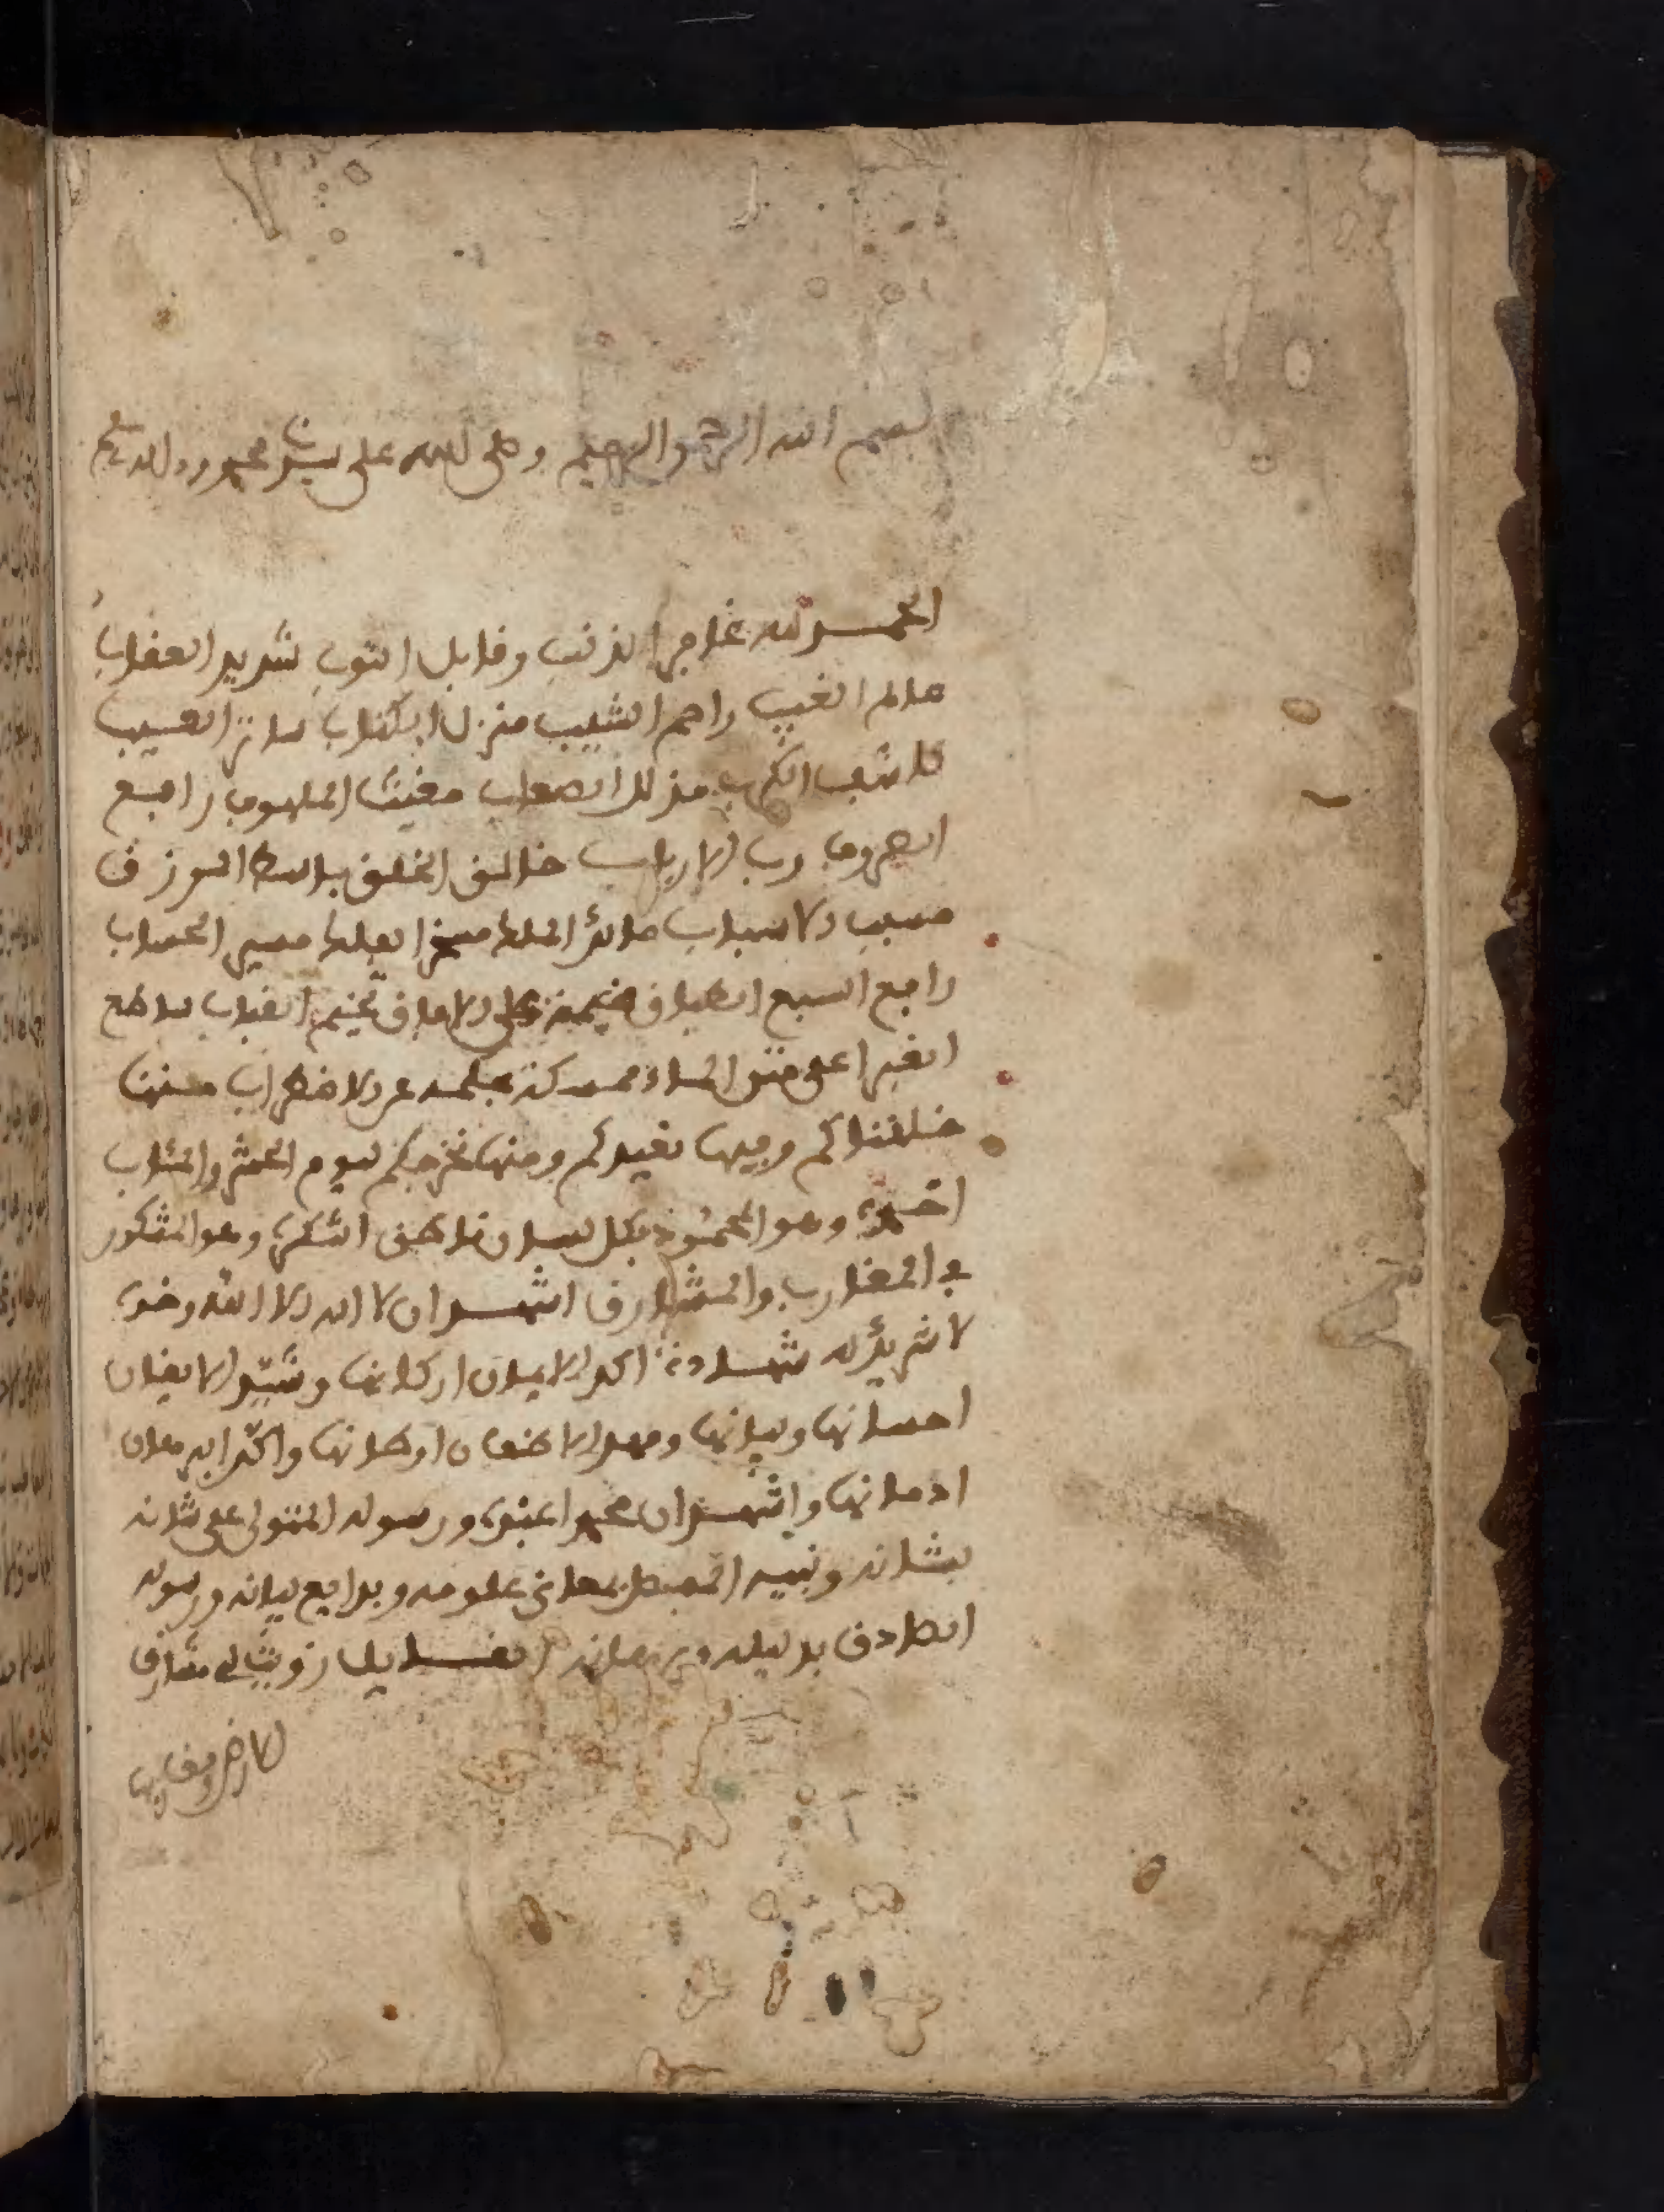 بسم الله الرحمن الرحيم وصلى الله على سيدنا محمد وءاله
الحمد لله غافر الذنب وقابل التوب شديد العقاب
عالم الغيب راحم الشيب منزل الكتاب ساتر العيب
كاشف الكرب مذلل الصعاب مغيث الملهوف رافع
الصروف رب الارباب خالق الخلق باسط الرزق
مسبب الاسباب مالك الملك مسخر الفلك مسير السحاب
رافع السبع الطباق على الافاق تخييم القباب ساطح
الغبرا على متن الماء ممسكة بحكمه عن الاضطراب منها
خلقناكم وفيها نعيدكم ومنها نخرجكم ليوم الحشر والمئاب
احمده وهو المحمود بكل لسان ناطق اشكره وهو المشكور
في المغارب والمشارق اشهد ان لا اله الا الله وحده
لا شريك له شهادة اكد الايمان اركانها وشيد الايقان
احسانها وبيانها ومهد الاضعان اوطانها واكد البرهان
ادمانها واشهد ان محمدا عبده ورسوله المتولى على شانه
بشانه ونبيه المحيط بمعاني علومه وبدايع بيانه ورسوله
الصادق بدليله وبرهانه القايل زويت لي مشارق
الارض ومغاربها